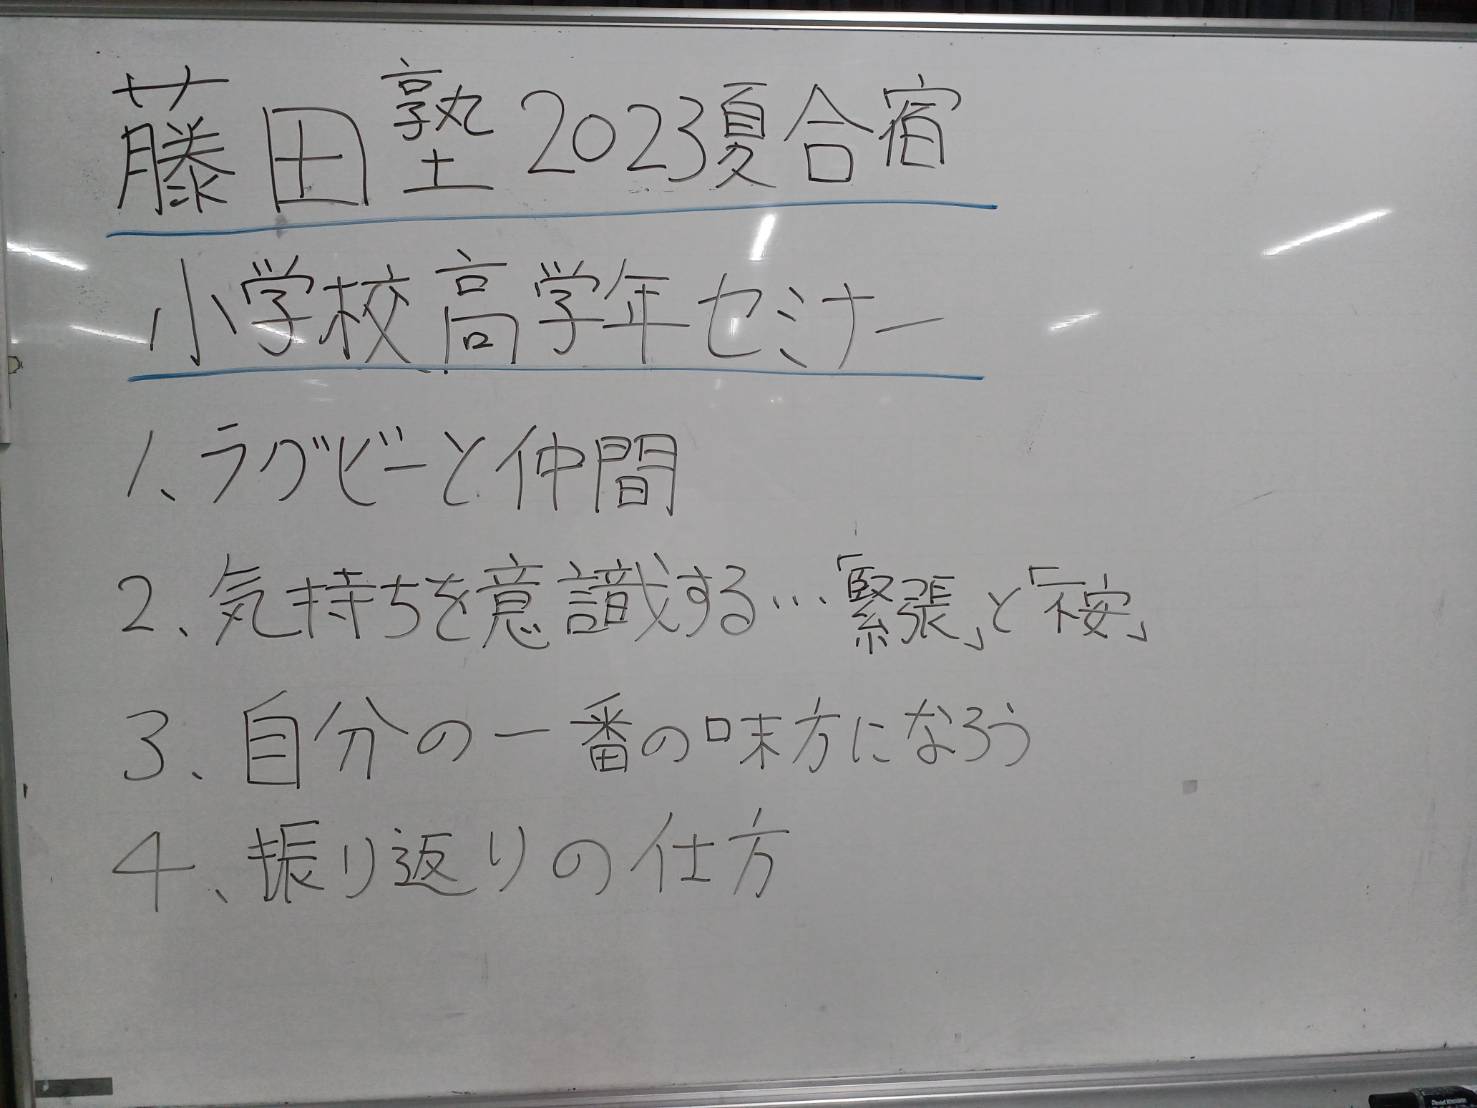 藤田塾2023夏合宿
小学校高学年セミナー
1、ラグビーと仲間
2、気持ちを意識する…「緊張」と「不安」
3、自分の一番の味方になろう
4、振り返りの仕方